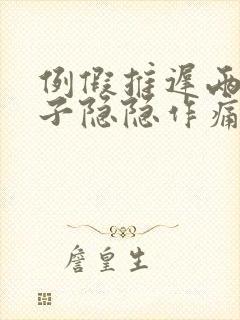 例假推迟两
子隐隐作痛
詹皇生